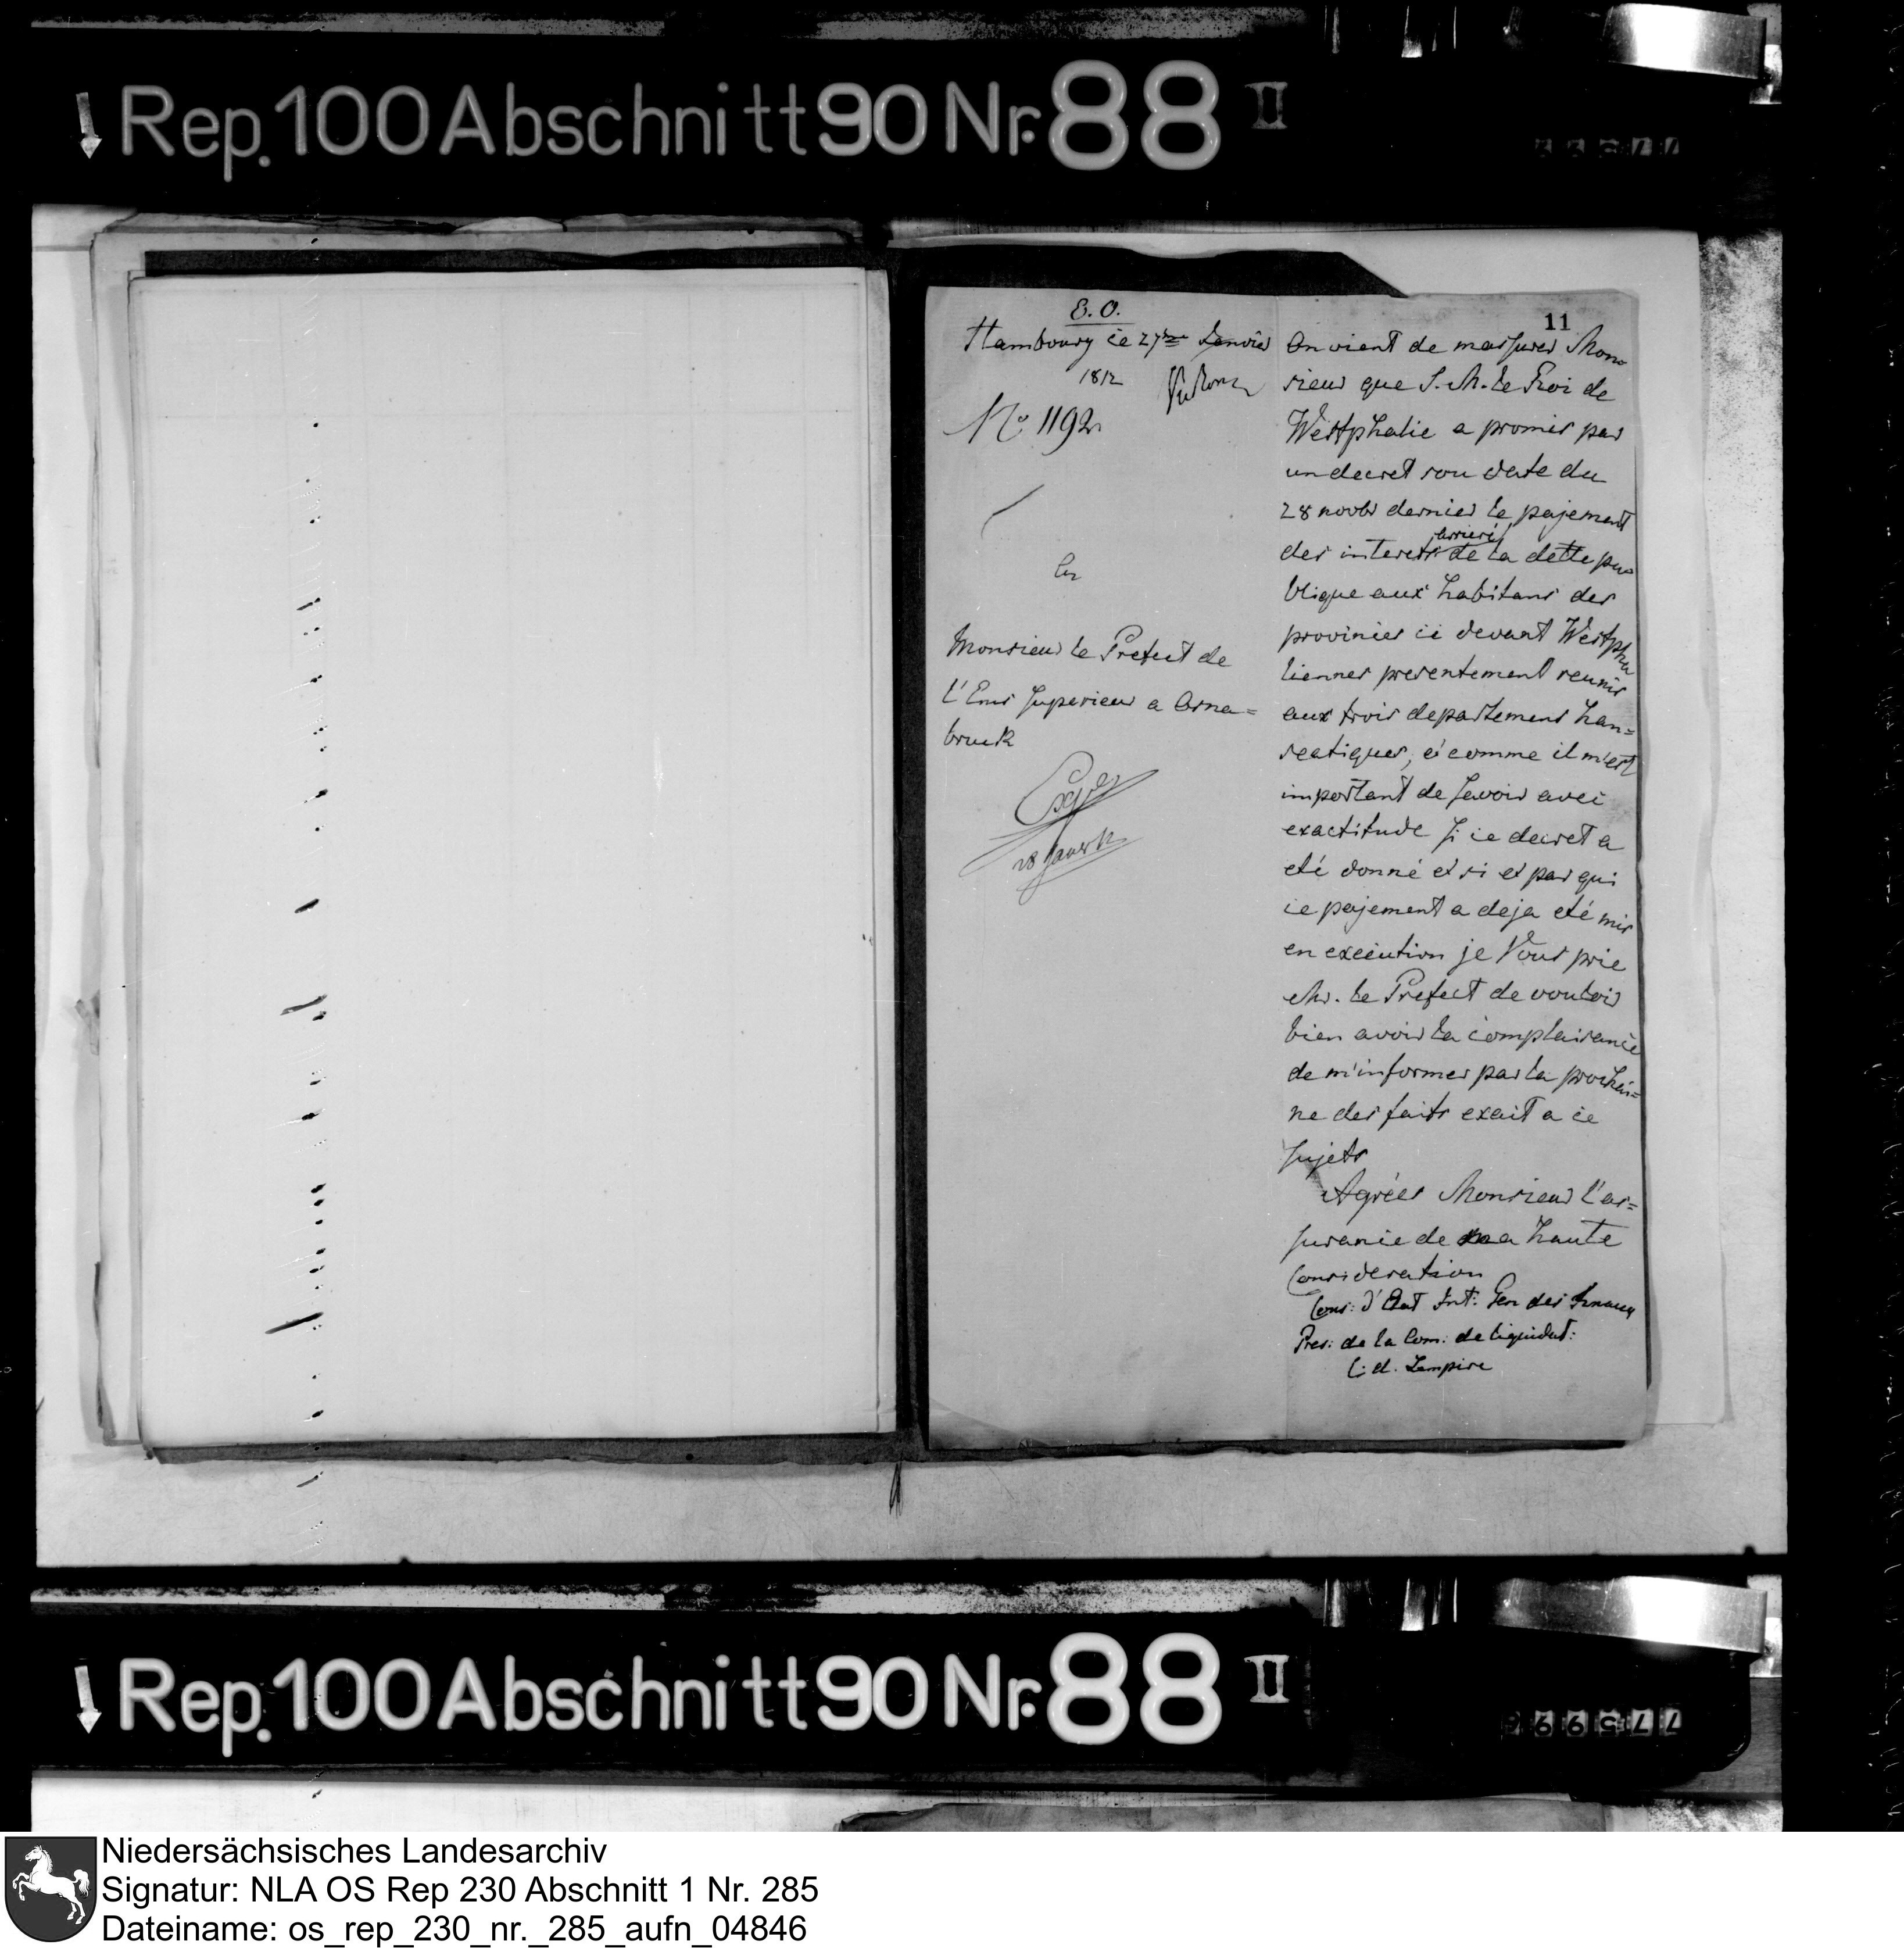 Rep. 100 Abschnitt 90 Nr. 88 II
E. O.
Hambourg ce 27me Janvier
1812
No 1192
a
Monsieur le Prefect de
l'Ems superieur a Osna=
bruck
28 Janv 12
11
On vient de m'assurer Mon
sieur que S. M. le Roi de
Westphalie a promis par
un decret sou date du
28 novbr dernier le pajement
des interets arrieré de la dette pu
blique aux habitans des
provinces ci devant Westpha
liennes presentement reunis
aux trois departemens han=
seatiques, e comme il m'est
important de savoir avec
exactitude si ce decret a
eté donné et si et par qui
ce pajement a deja eté mis
en execution je Vous prie
Mr. le Prefect de vouloir
bien avoir la complaisance
de m'informer par la prochai=
ne des faits exact a ce
sujets
Agréez Monsieur l'as=
surance de ma haute
Consideration
Cons: d'Etat Int: Gen des finances
Pres: de la Com: de liquidat:
Rep. 100 Abschnitt 90 Nr. 88 II
Niedersächsisches Landesarchiv
Signatur: NLA OS Rep 230 Abschnitt 1 Nr. 285
Dateiname: os_rep_230_nr._285_aufn_04846